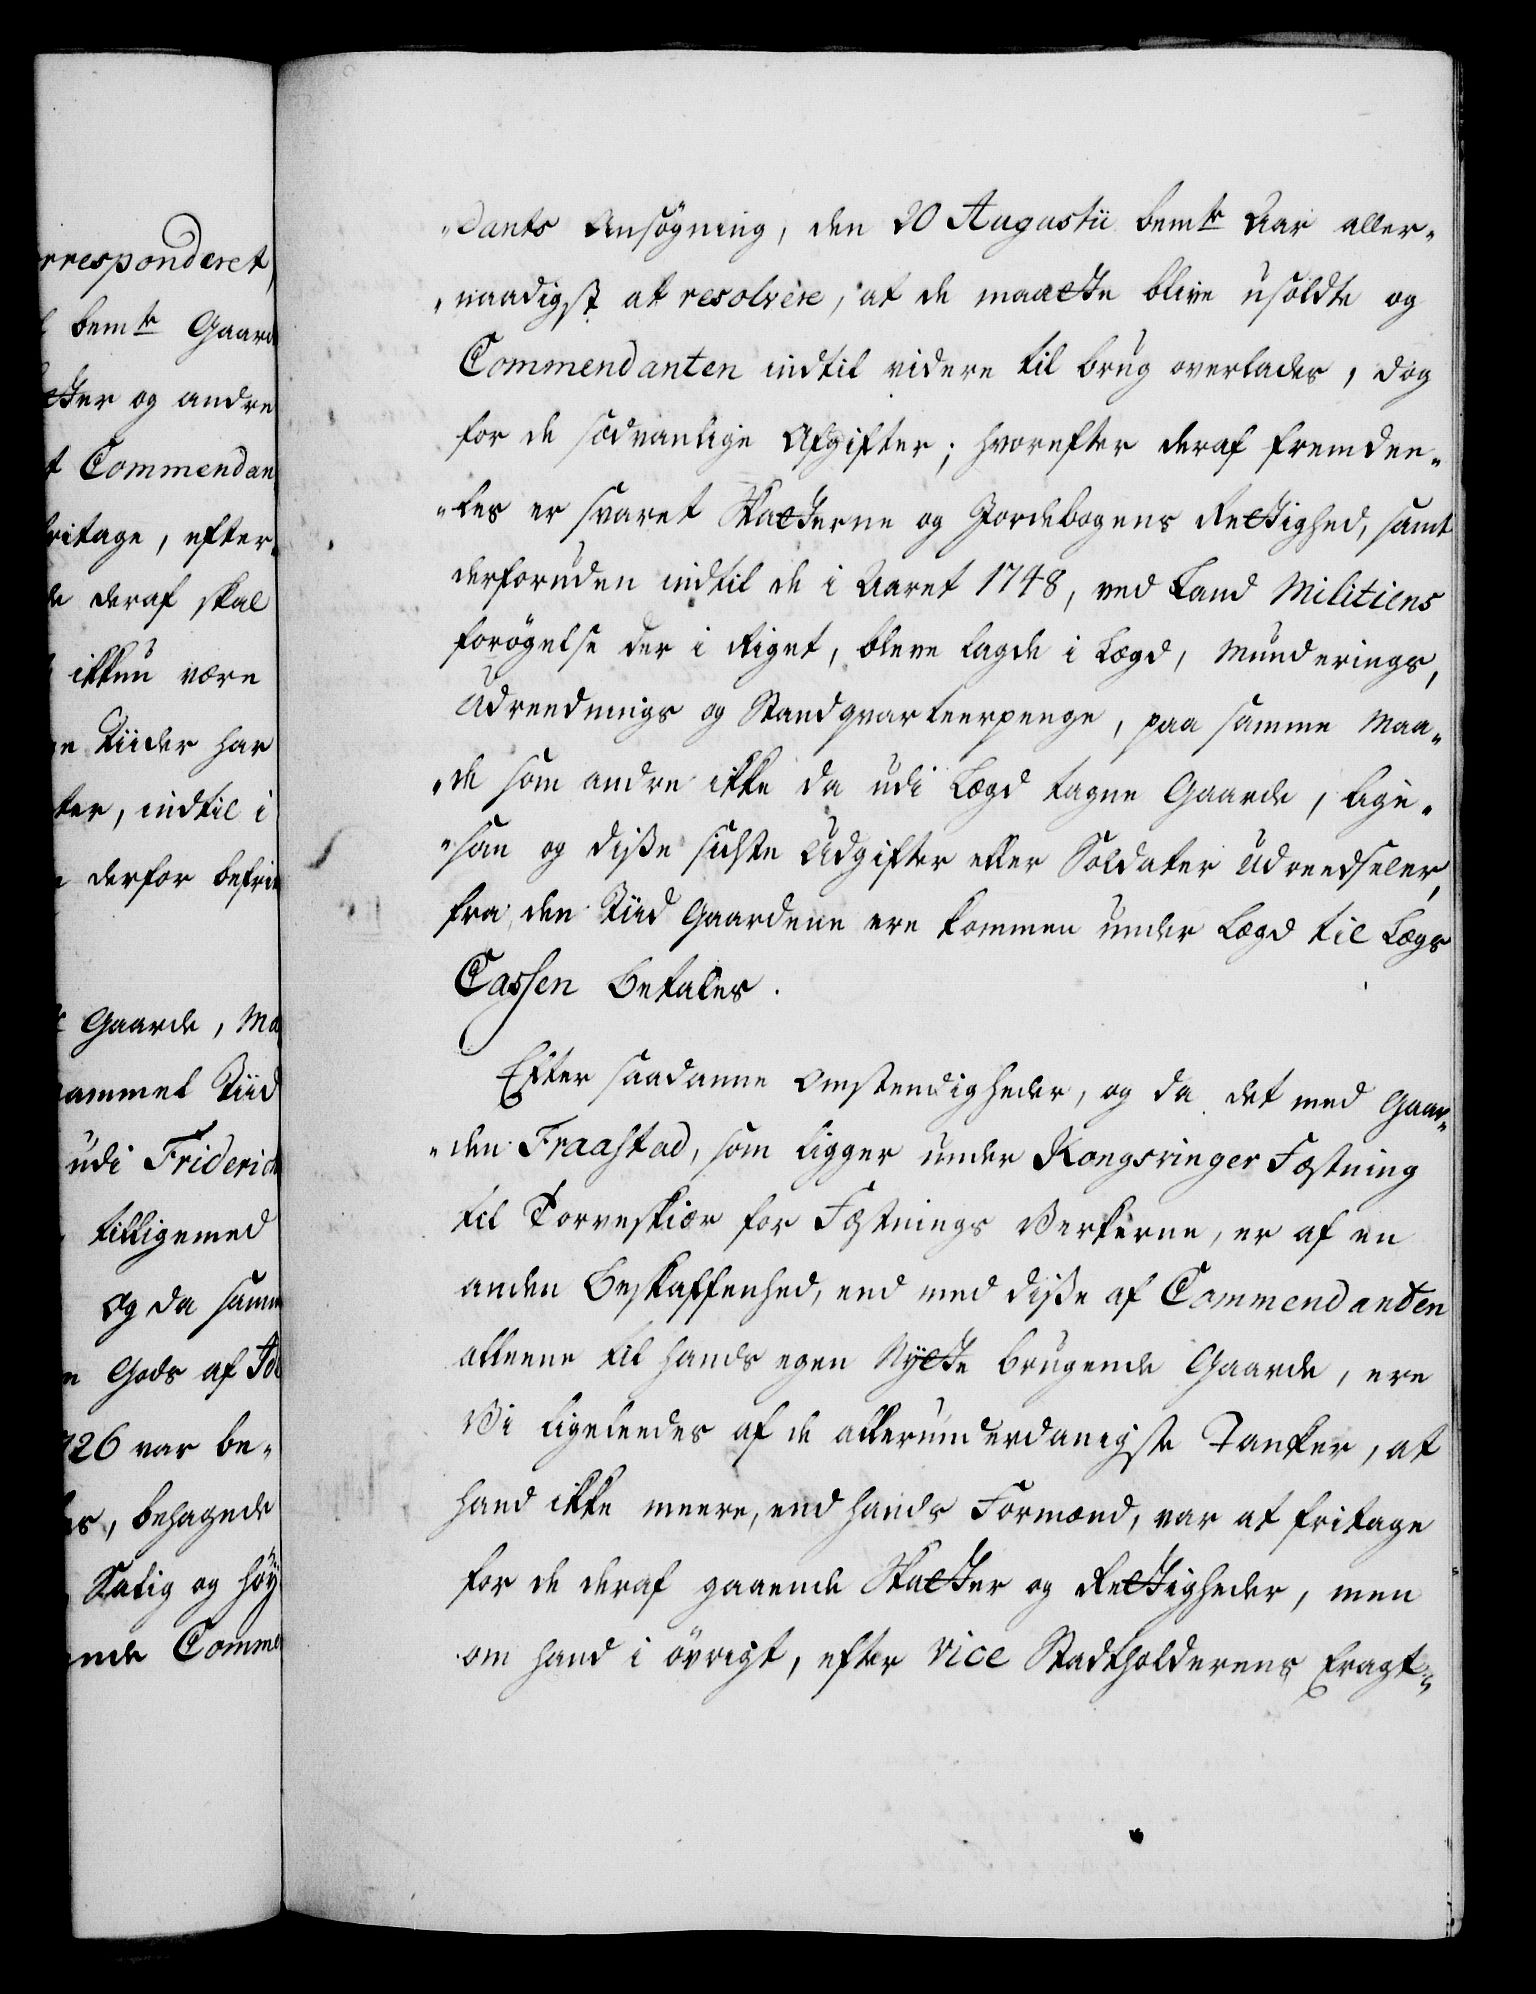 rresponderet,
bemte Gaard
tter og andre
t Commendan
fritage, efter-
de deraf skal
ikkun være
ge Tiider har
ter, indtil i
derfor befri
Gaarde, Ma
gammel Tiid
udi Friderich
tilligemed
Og da samm
Gods af Ad
726 var be-
es, behagede
Salig og høy
ende Comme
"dants Ansøgning, den 20 Augustii bemte Aar aller-
"naadigst at resolvere, at de maatte blive usoldte og
Commendanten indtil videre til brug overlades, dog
for de sædvanlige Afgifter; hvorefter deraf fremdee-
"les er svaret Skatterne og Jordebogens Rettighed, samt
derforuden indtil de i Aaret 1748, ved Land Militiens
forøgelse der i Riget, bleve lagde i Lægd, Munderings,
Udreednings og Standqvarteerpenge, paa samme Maa-
"de som andre ikke da udi Lægd tagne Gaarde, lige-
"saa og disse sidste Udgifter eller Soldater Udreedseler,
fra den Tiid Gaardene ere kommen under Lægd til Lægs
Cassen betales.
Efter saadanne Omstendigheder, og da det med Gaar-
"den Fraastad, som ligger under Kongsvinger Fæstning
til Torveskiær for Fæstnings Verkerne, er af en
anden Beskaffenhed, end med disse af Commendanten
alleene til hands egen Nytte brugende Gaarde, ere
Vi ligeleedes af de allerunderdanigste Tanker, at
hand ikke meere, end hands Formænd, var at fritage
for de deraf gaaende Skatter og Rettigheder, men
om hand i øvrigt, efter Vice Stadtholderens Eragt-